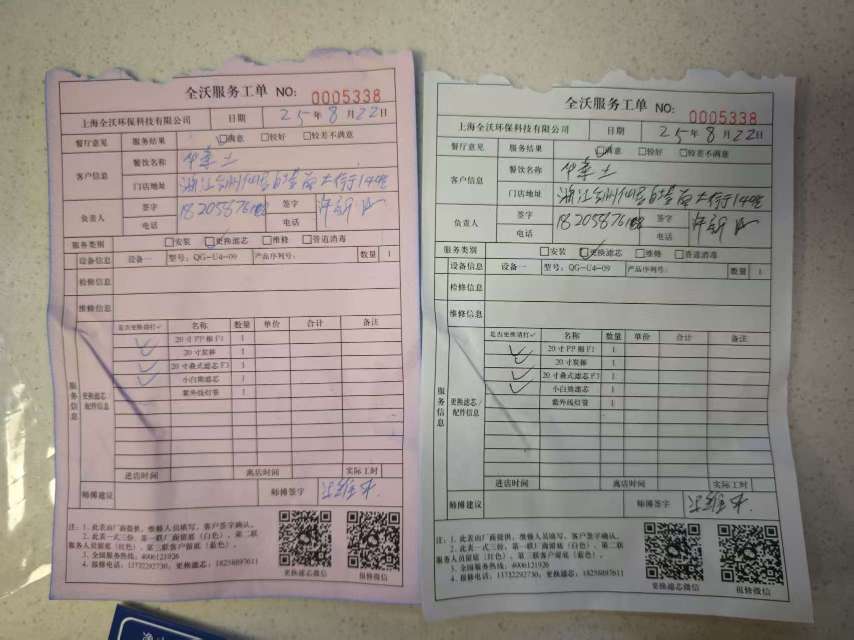 全沃服务工单 NO: 0005338
上海全沃环保科技有限公司 日期 25年8月22日
餐厅意见 服务结果 满意 较好 较差不满意
客户信息 餐饮名称 华莱士
门店地址 浙江台州仙居
负责人 签字 签字
电话 电话
服务类别 安装 更换滤芯 维修 管道消毒
设备信息 设备一 型号: QG-U4-09 产品序列号: 数量 1
检修信息
维修信息
服务信息 更换滤芯/配件信息
是否更换请打✓ 名称 数量 单价 合计 备注
✓ 20寸PP棉 1
✓ 20寸炭棒 1
✓ 20寸叠式滤芯 1
✓ 小白简滤芯 1
紫外线灯管 1
进店时间 离店时间 实际工时
师傅建议 师傅签字
注: 1. 此表由厂商提供, 维修人员填写, 客户签字确认。
2. 此表一式三份, 第一联厂商留底(白色)、第二联
服务人员留底(红色)、第三联客户留底(蓝色)。
3. 全国服务热线: 4006121926
4. 报修电话: 13732292730, 更换滤芯: 18258897611
更换滤芯微信 报修微信
全沃服务工单 NO: 0005338
上海全沃环保科技有限公司 日期 25年8月22日
餐厅意见 服务结果 满意 较好 较差不满意
客户信息 餐饮名称 华莱士
门店地址 浙江台州仙居
负责人 签字 签字
电话 电话
服务类别 安装 更换滤芯 维修 管道消毒
设备信息 设备一 型号: QG-U4-09 产品序列号: 数量 1
检修信息
维修信息
服务信息 更换滤芯/配件信息
是否更换请打✓ 名称 数量 单价 合计 备注
✓ 20寸PP棉 1
✓ 20寸炭棒 1
✓ 20寸叠式滤芯 1
✓ 小白简滤芯 1
紫外线灯管 1
进店时间 离店时间 实际工时
师傅建议 师傅签字
注: 1. 此表由厂商提供, 维修人员填写, 客户签字确认。
2. 此表一式三份, 第一联厂商留底(白色)、第二联
服务人员留底(红色)、第三联客户留底(蓝色)。
3. 全国服务热线: 4006121926
4. 报修电话: 13732292730, 更换滤芯: 18258897611
更换滤芯微信 报修微信